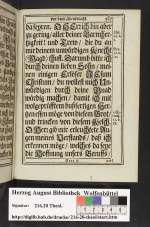 vor dem Abendmahl
da seyen. O HErr ich bin aber
zu gering / aller deiner Barmher-
tzigkeit / und Treue / die du an
mir deinem unwürdigen
Magd / thust. Darum bitte ich
durch deinen lieben Sohn / mei-
nen einigen Erlöser JEsum
Christum / du wollest mich Un-
würdigen durch deine Gnad
würdig machen / damit ich mit
bußfertigem Her-
tzen essen möge von diesem Brod /
und trincken von diesem Kelch.
O Herr gib mir erleuchtete Au-
gen meines Verstands / daß ich
erkennen möge / welches da seye
die Hoffnung unsers Beruffs /
Herzog August Bibliothek Wolfenbüttel
Signatur: 216.20 Theol.
http://diglib.hab.de/drucke/216-20-theol/start.htm